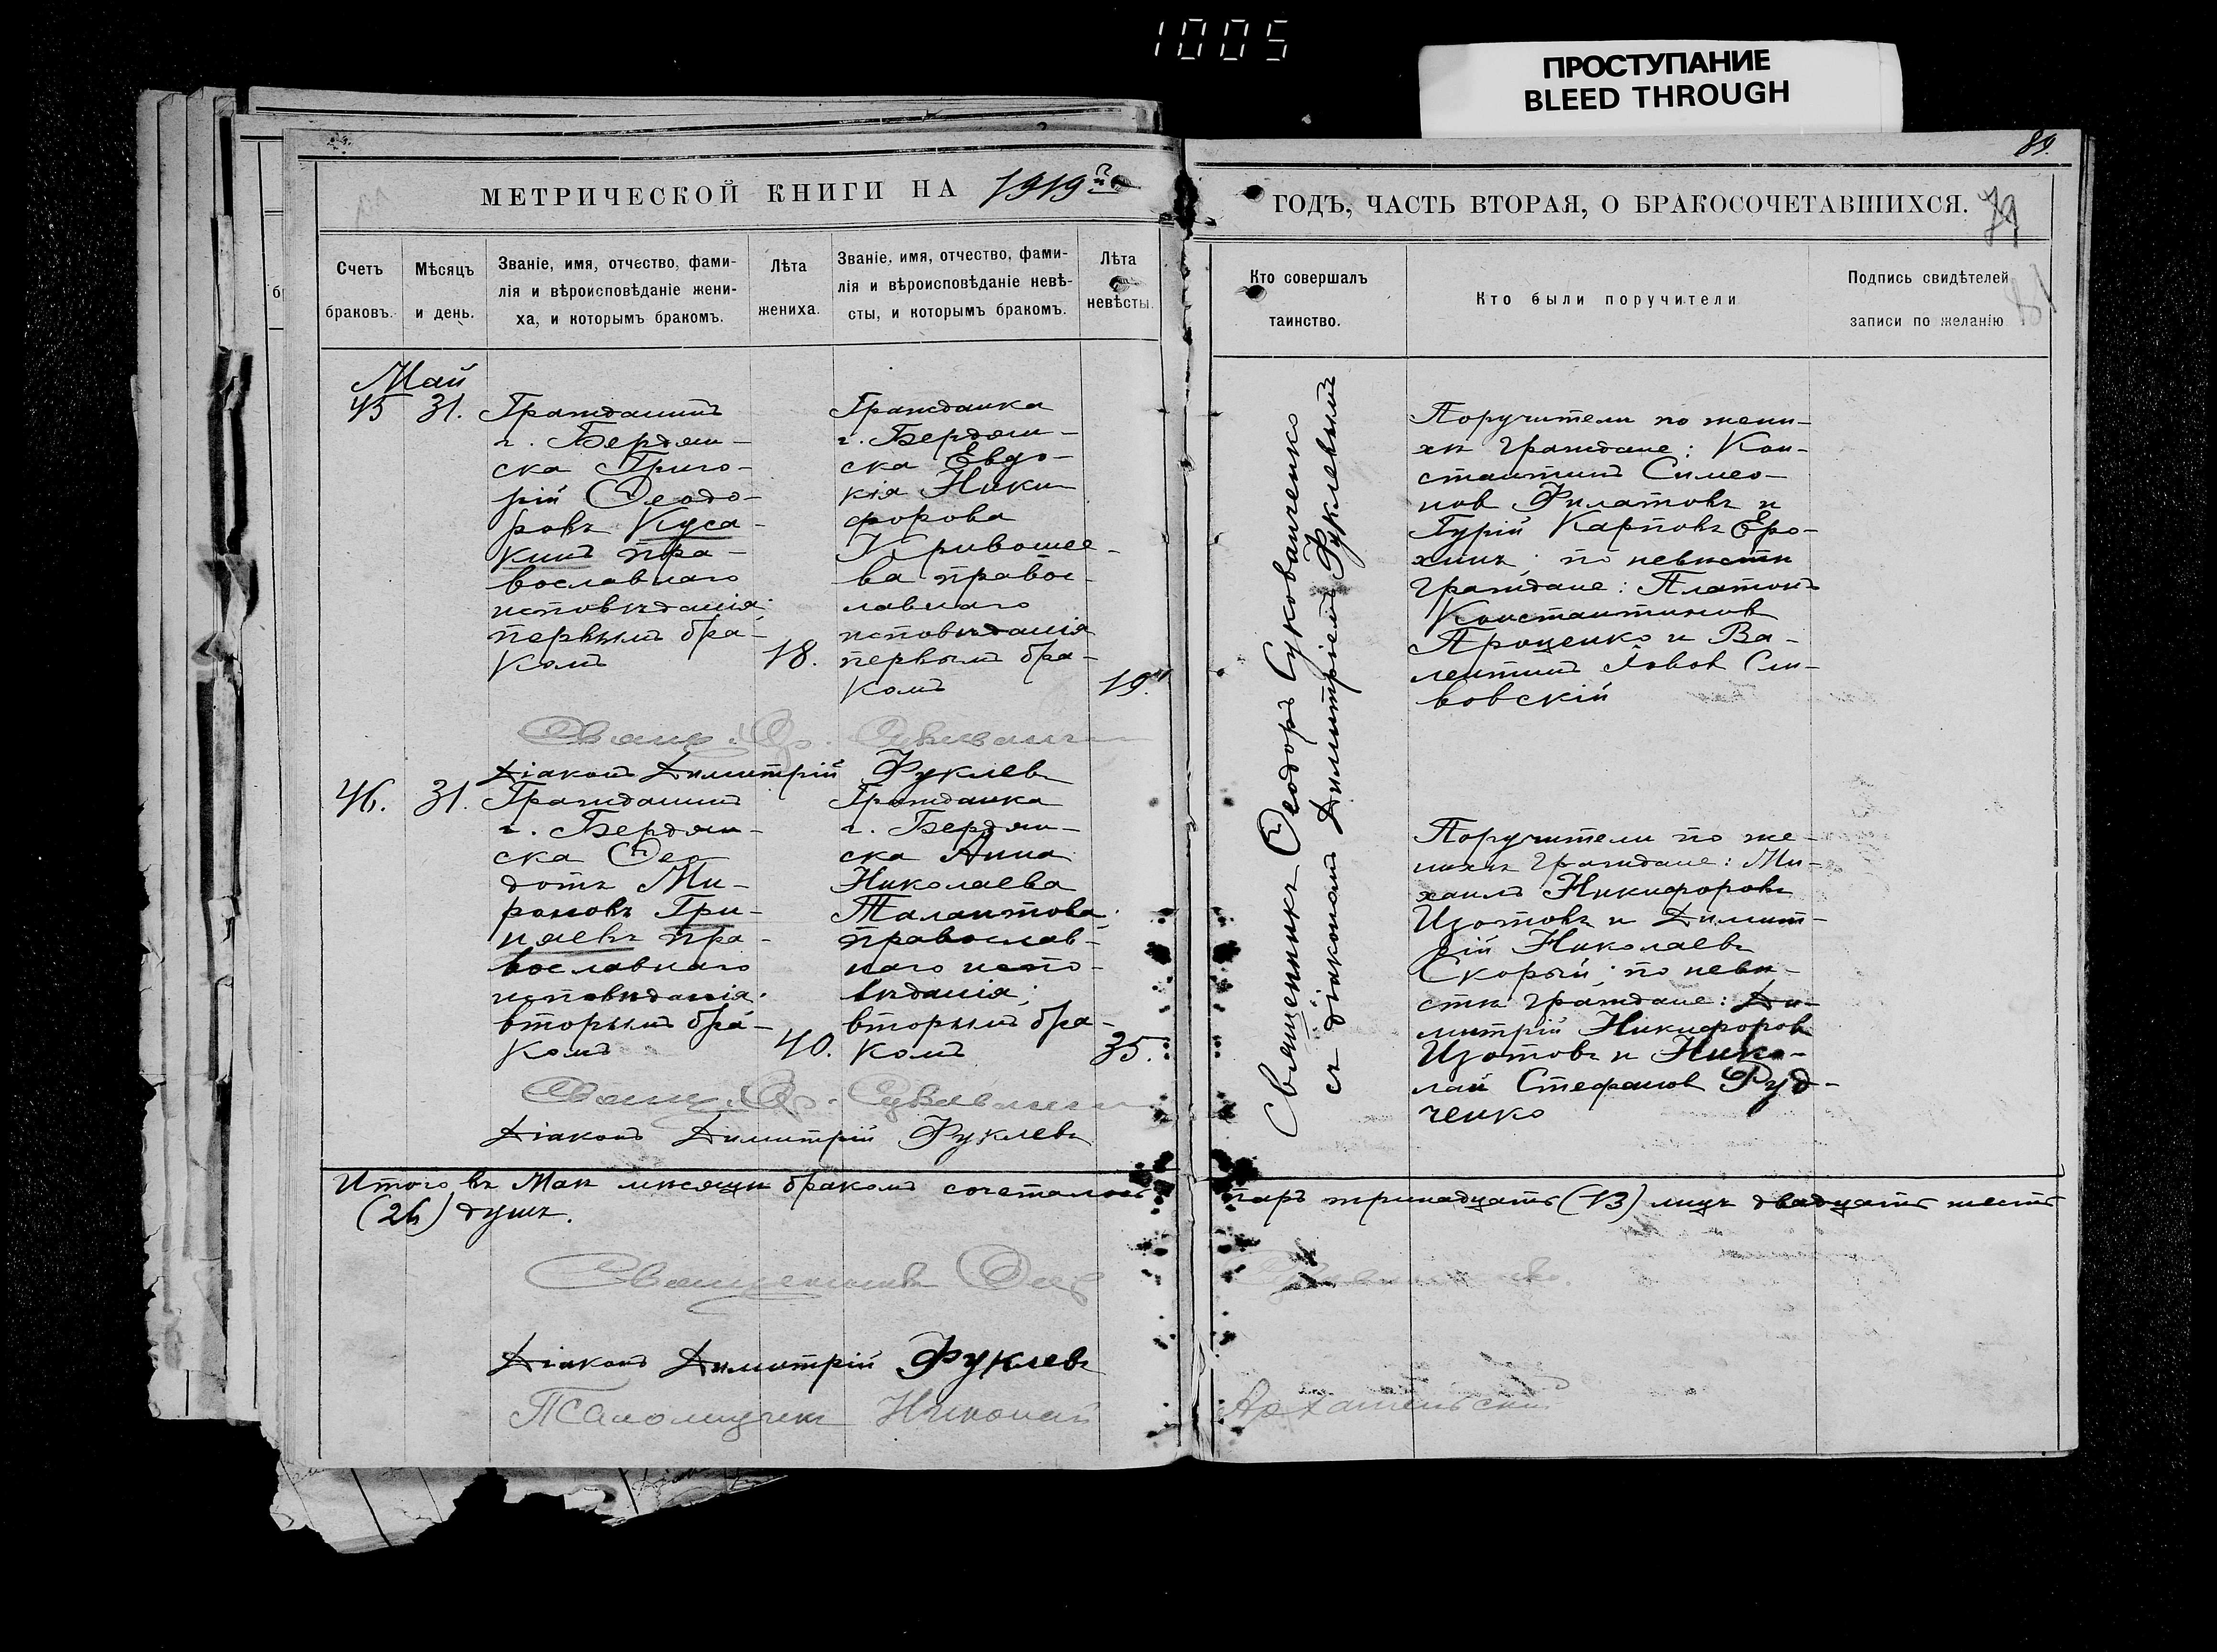 1005
ПРОСТУПАНИЕ
BLEED THROUGH
89.
МЕТРИЧЕСКОЙ КНИГИ НА 1919й
ГОДЪ, ЧАСТЬ ВТОРАЯ, О БРАКОСОЧЕТАВШИХСЯ.
Счетъ
браковъ.
Мѣсяцъ
и день.
Званіе, имя, отчество, фами-
лія и вѣроисповѣданіе жени-
ха, и которымъ бракомъ.
Лѣта
жениха.
Званіе, имя, отчество, фами-
лія и вѣроисповѣданіе невѣ-
сты, и которымъ бракомъ.
Лѣта
невѣсты.
Кто совершалъ
таинство.
Кто были поручители
Подпись свидѣтелей
записи по желанію
Май
45 31.
Гражданинъ
г. Бердян-
ска Григо-
рій Ѳеодо-
ровъ Куса-
кинъ пра-
вославнаго
исповѣданія;
первымъ бра-
комъ
18.
Гражданка
г. Бердян-
ска Евдо-
кія Ники-
форова
Кривошее-
ва правос-
лавнаго
исповѣданія
первымъ бра-
комъ
19.
Священникъ Ѳеодоръ Сукованченко
съ діакономъ Димитріемъ Фуклевымъ
Поручители по жени-
хѣ граждане: Кон-
стантинъ Симео-
новъ Филатовъ и
Гурій Карповъ Еро-
хинъ; по невѣстѣ
граждане: Платонъ
Константиновъ
Проценко и Ва-
лентинъ Іововъ Си-
вовскій
Свящ. Ѳ.
Діаконъ Димитрій Фуклевъ
46. 31.
Гражданинъ
г. Бердян-
ска Ѳео-
дотъ Ми-
роновъ Гри-
наевъ пра-
вославнаго
исповѣданія;
вторымъ бра-
комъ
40.
Гражданка
г. Бердян-
ска Анна
Николаева
Талантова;
православ-
наго испо-
вѣданія;
вторымъ бра-
комъ
35.
Поручители по же-
нихѣ граждане: Ми-
хаилъ Никифоровъ
Изотовъ и Димит-
рій Николаевъ
Скорый; по невѣ-
стѣ граждане: Ди-
митрій Никифоровъ
Изотовъ и Нико-
лай Стефановъ Руд-
ченко
Свящ. Ѳ.
Діаконъ Димитрій Фуклевъ
Итого въ Маѣ мѣсяцѣ бракомъ сочеталось паръ тринадцать (13) лицъ двадцать шесть
(26) душъ.
Священникъ Ѳеод
Діаконъ Димитрій Фуклевъ
Псаломщикъ Николай Архангельскій